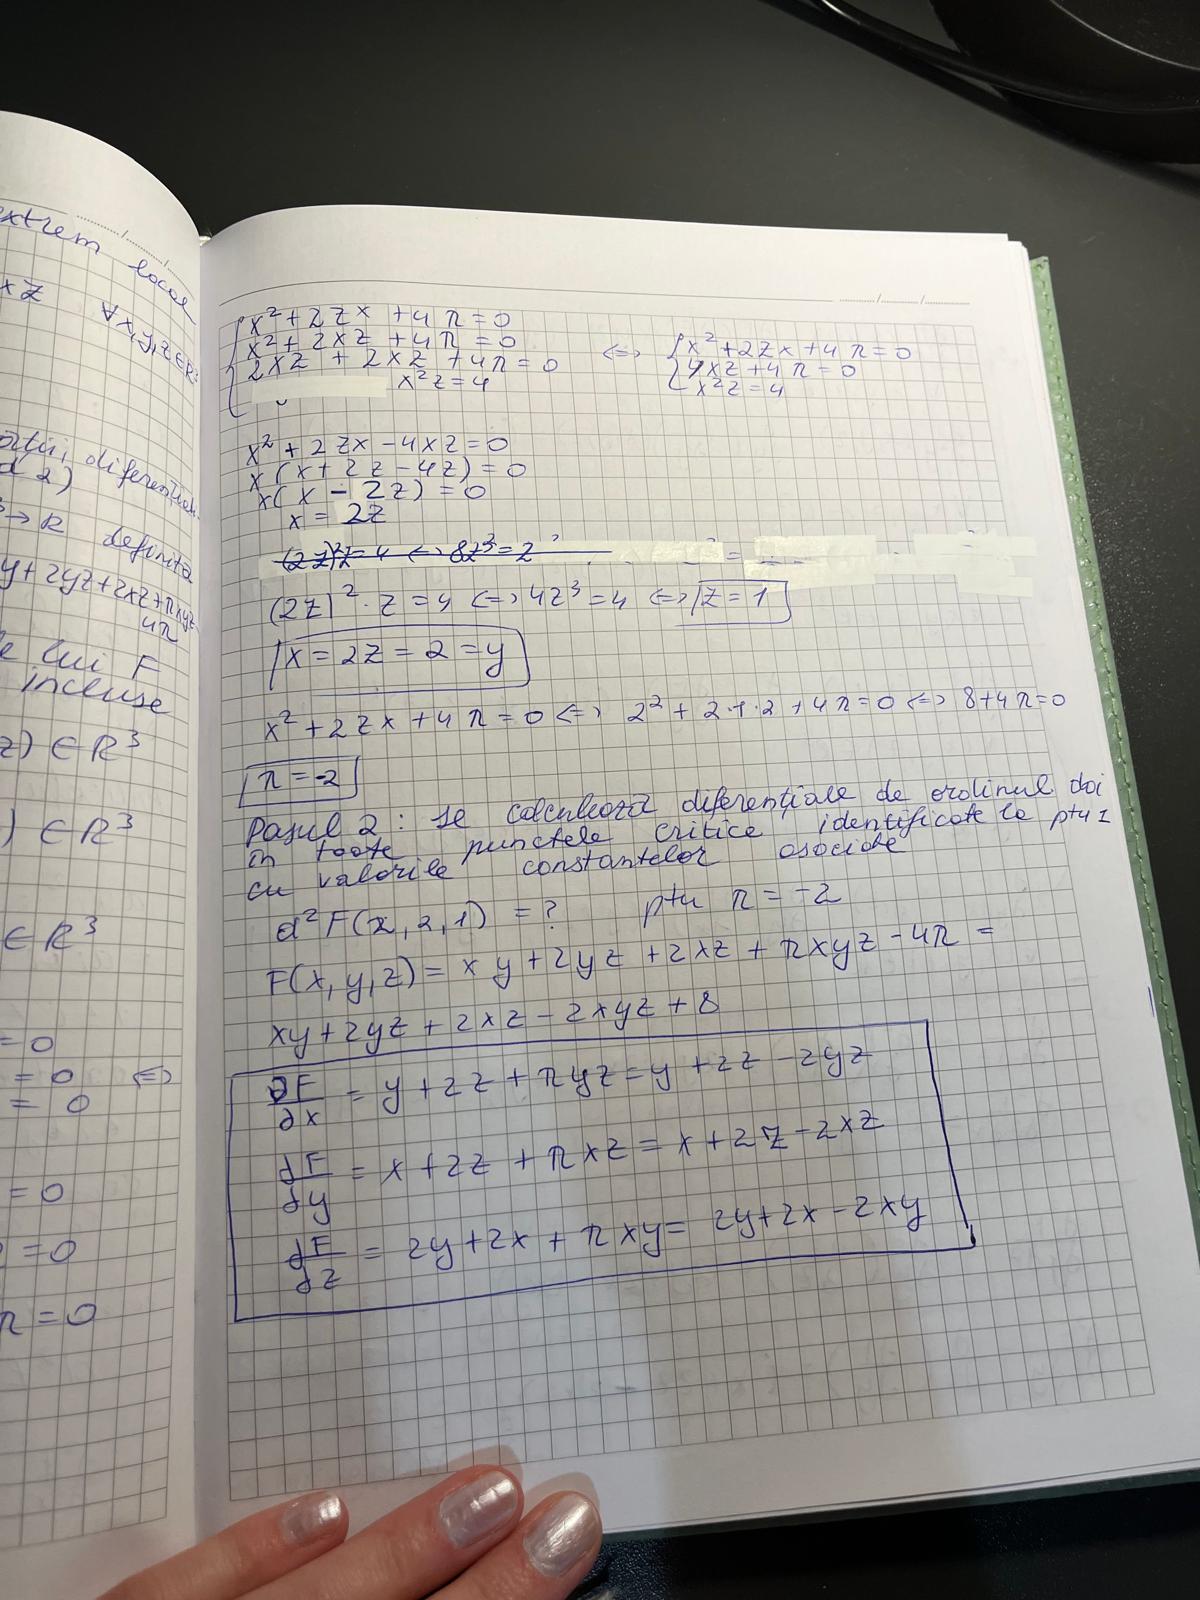 extrem local
xz ∀x,y,z∈R³
diferențial
d 2)
³→R definită
y+2yz+2xz+πxyz-
4π
e lui F
incluse
z) ∈ R³
) ∈ R³
∈ R³
= 0
= 0 <=>
= 0
= 0
= 0
π = 0
x² + 2zx + 4π = 0
x² + 2xz + 4π = 0
2xz + 2xz + 4π = 0
x²z = 4
<=> x² + 2zx + 4π = 0
4xz + 4π = 0
x²z = 4
x² + 2zx - 4xz = 0
x(x + 2z - 4z) = 0
x(x - 2z) = 0
x = 2z
(2z)²z = 4 <=> 8z³ = 2
(2z)² · z = 4 <=> 4z³ = 4 <=> z = 1
x = 2z = 2 = y
x² + 2zx + 4π = 0 <=> 2² + 2·1·2 + 4π = 0 <=> 8 + 4π = 0
π = -2
Pasul 2 : se calculează diferențiale de ordinul doi
în toate punctele critice identificate la ptu 1
cu valorile constantelor asociate
d²F(2, 2, 1) = ? ptu π = -2
F(x, y, z) = xy + 2yz + 2xz + πxyz - 4π =
xy + 2yz + 2xz - 2xyz + 8
∂F/∂x = y + 2z + πyz = y + 2z - 2yz
∂F/∂y = x + 2z + πxz = x + 2z - 2xz
∂F/∂z = 2y + 2x + πxy = 2y + 2x - 2xy